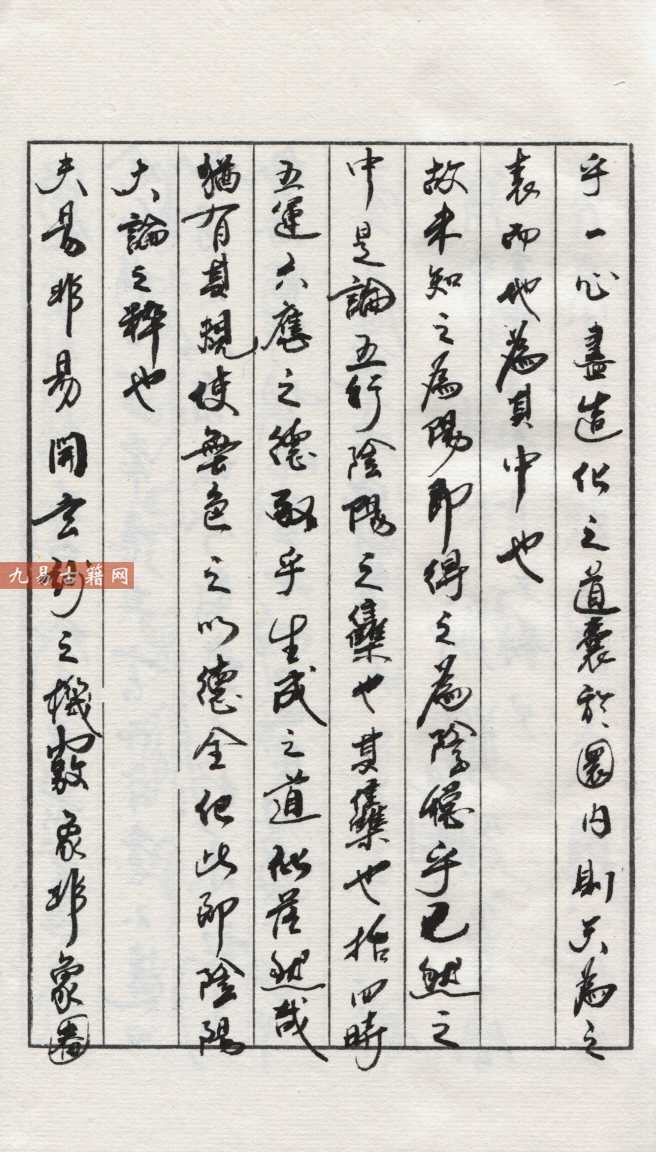 乎一心盡造化之道囊於圈内則天為之
表而地為其中也
故未知之為陽即得之為陰穩乎已然之
中是論五行陰陽之彙也其彙也括四時
五運六應之德敢乎生成之道似荒然哉
猶有其規使無色之以德全化此即陰陽
大論之粹也
夫易非易開玄之機數象非象圈
九易古籍网